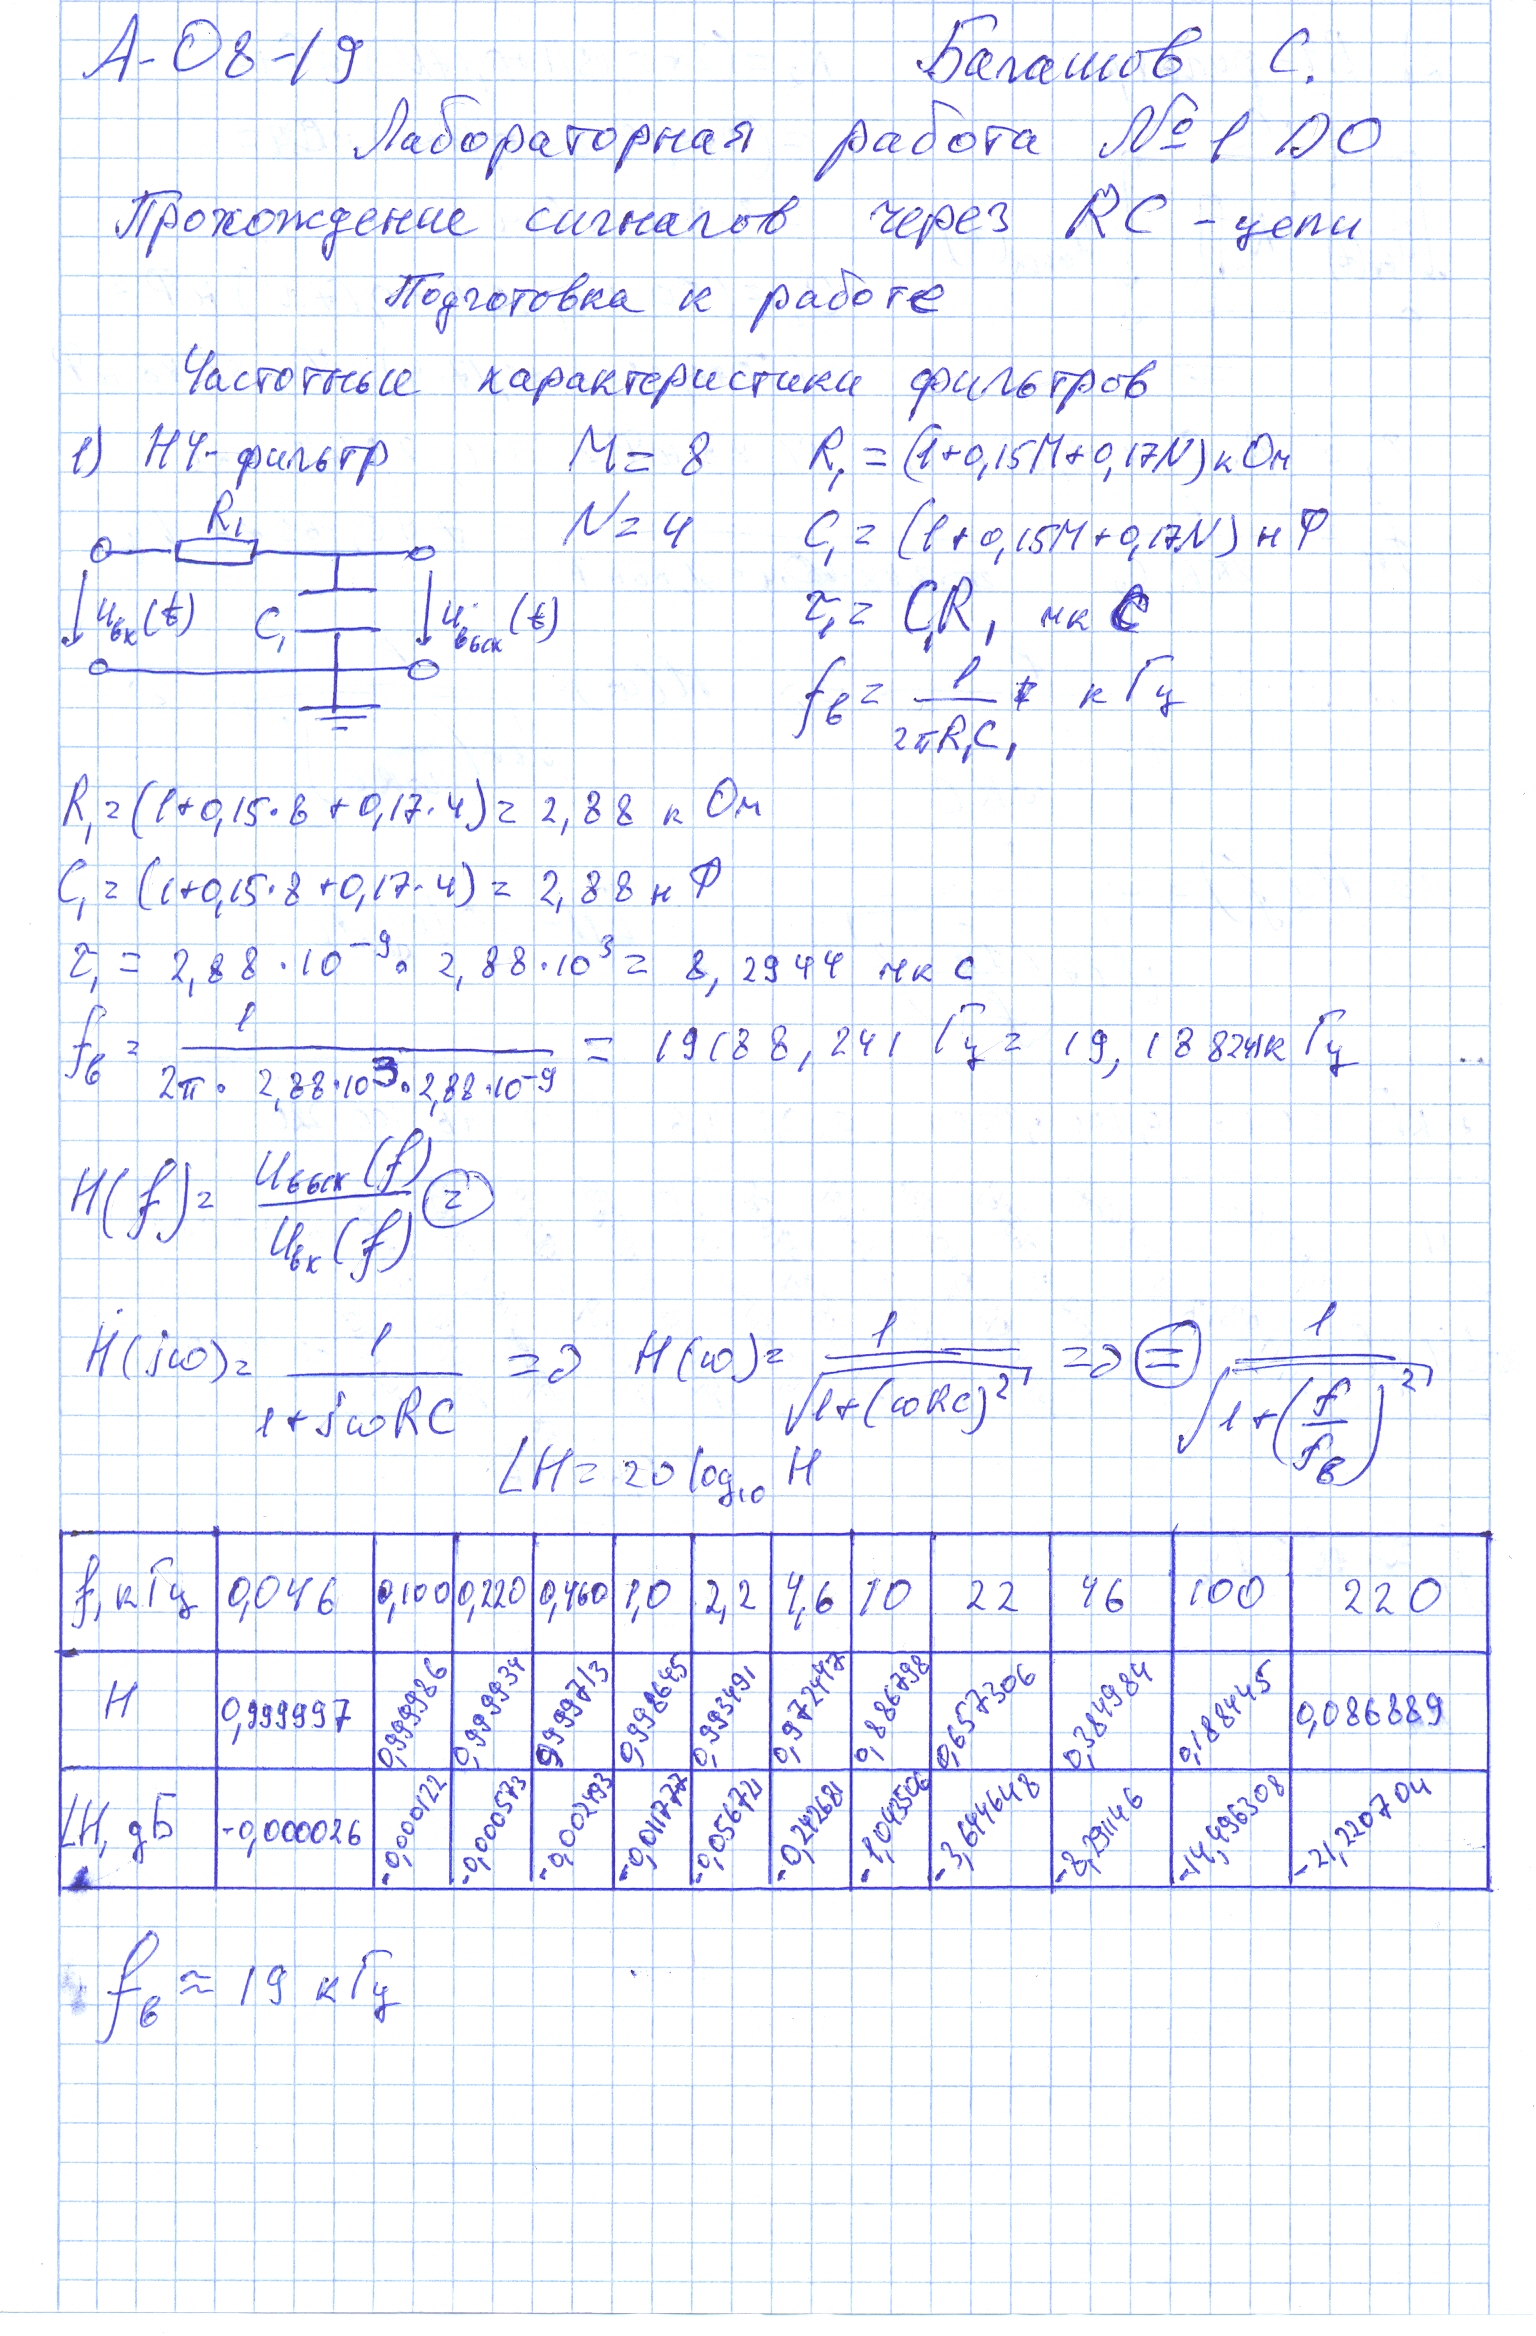 А-08-19 Балашов С.
Лабораторная работа №1 ДО
Прохождение сигналов через RC-цепи
Подготовка к работе
Частотные характеристики фильтров
1) НЧ-фильтр M = 8 R₁ = (1+0,15M+0,17N) кОм
N = 4 C₁ = (1+0,15M+0,17N) нФ
R₁
τ₁ = C₁R₁ мкс
uвх(t) C₁ uвых(t)
fв = 1/(2πR₁C₁) кГц
R₁ = (1+0,15·8+0,17·4) = 2,88 кОм
C₁ = (1+0,15·8+0,17·4) = 2,88 нФ
τ₁ = 2,88·10⁻⁹·2,88·10³ = 8,2944 мкс
fв = 1/(2π·2,88·10³·2,88·10⁻⁹) = 19188,241 Гц = 19,188241 кГц
H(f) = Uвых(f)/Uвх(f) =
Ḣ(jω) = 1/(1+jωRC) => H(ω) = 1/√(1+(ωRC)²) => = 1/√(1+(f/fв)²)
LH = 20 log₁₀ H
f, кГц 0,046 0,100 0,220 0,460 1,0 2,2 4,6 10 22 46 100 220
H 0,999997 0,999986 0,999934 0,999713 0,998645 0,993491 0,972447 0,886798 0,657306 0,384984 0,188445 0,086889
LH, дБ -0,000026 -0,000122 -0,000573 -0,002493 -0,011777 -0,05672 -0,242681 -1,043506 -3,644648 -8,291146 -14,496308 -21,220704
fв ≈ 19 кГц